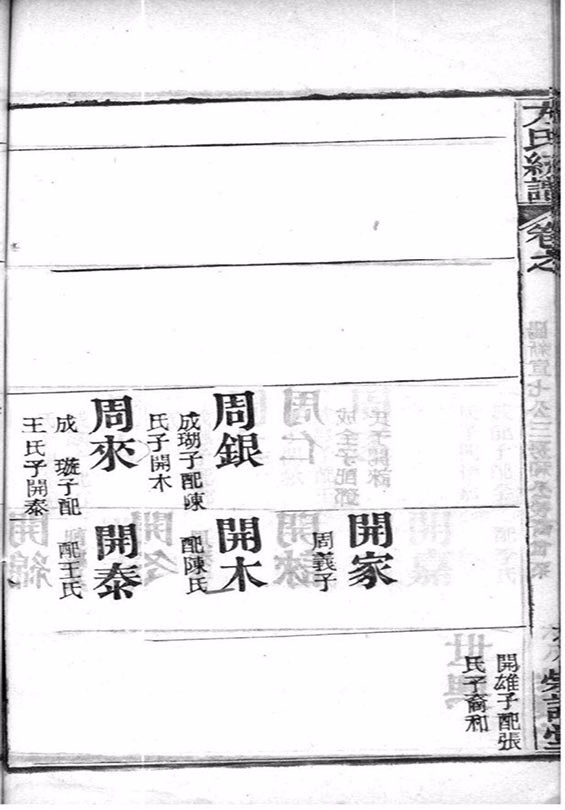 氏統譜
卷之
周銀
成瑚子配陳
氏子開木
周來
成 璇子配
王氏子開泰
開家
周義子
開木
配陳氏
開泰
配王氏
開雄子配張
氏子裔和